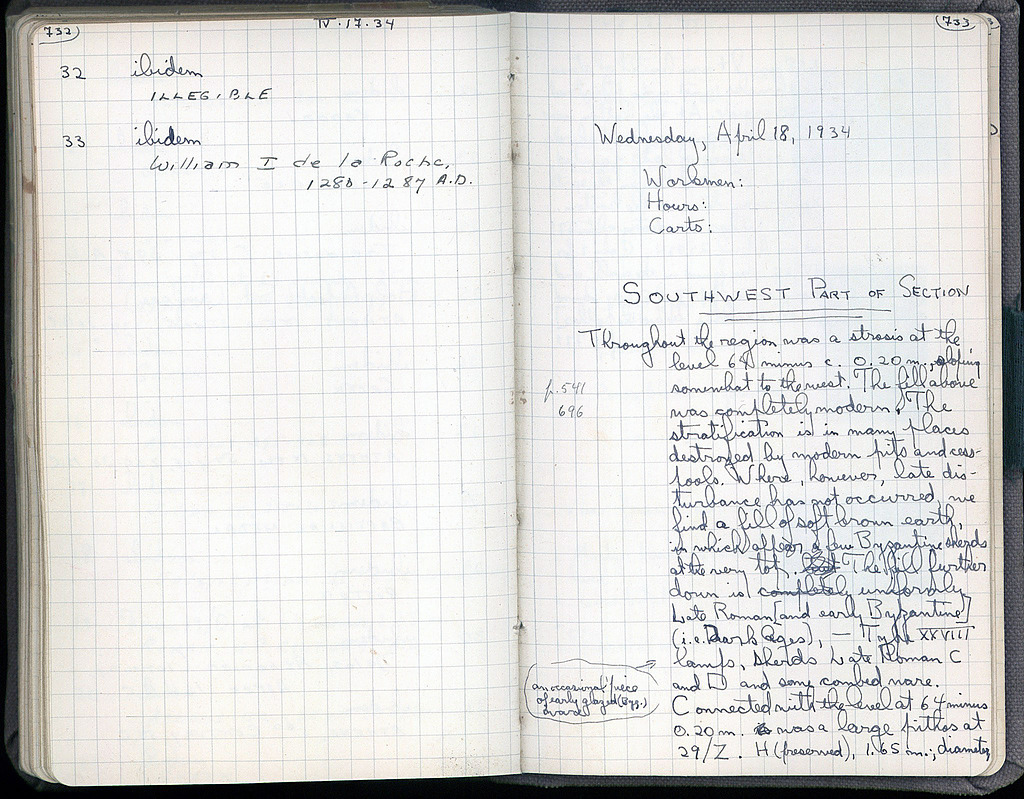 732
IV.17.34
32 ibidem
ILLEGIBLE
33 ibidem
William I de la Roche,
1280-1287 A.D.
733
Wednesday, April 18, 1934
Workmen:
Hours:
Carts:
SOUTHWEST PART OF SECTION
Throughout the region was a strosis at the
level 64 minus c. 0.20 m., sloping
somewhat to the west. The fill above
p. 541
696
was completely modern. The
stratification is in many places
destroyed by modern pits and cess-
pools. Where, however, late dis-
turbance has not occurred, we
find a fill of soft brown earth,
in which appear a few Byzantine sherds
at the very top. The fill further
down is completely uniformly
Late Roman [and early Byzantine]
(i.e. Dark Ages), — Type XXVIII
lamps, sherds Late Roman C
and D and some combed ware.
an occasional piece
of early glazed (Byz.)
ware
Connected with the level at 64 minus
0.20 m. was a large pithos at
29/Z. H (preserved), 1.65 m.; diameter,